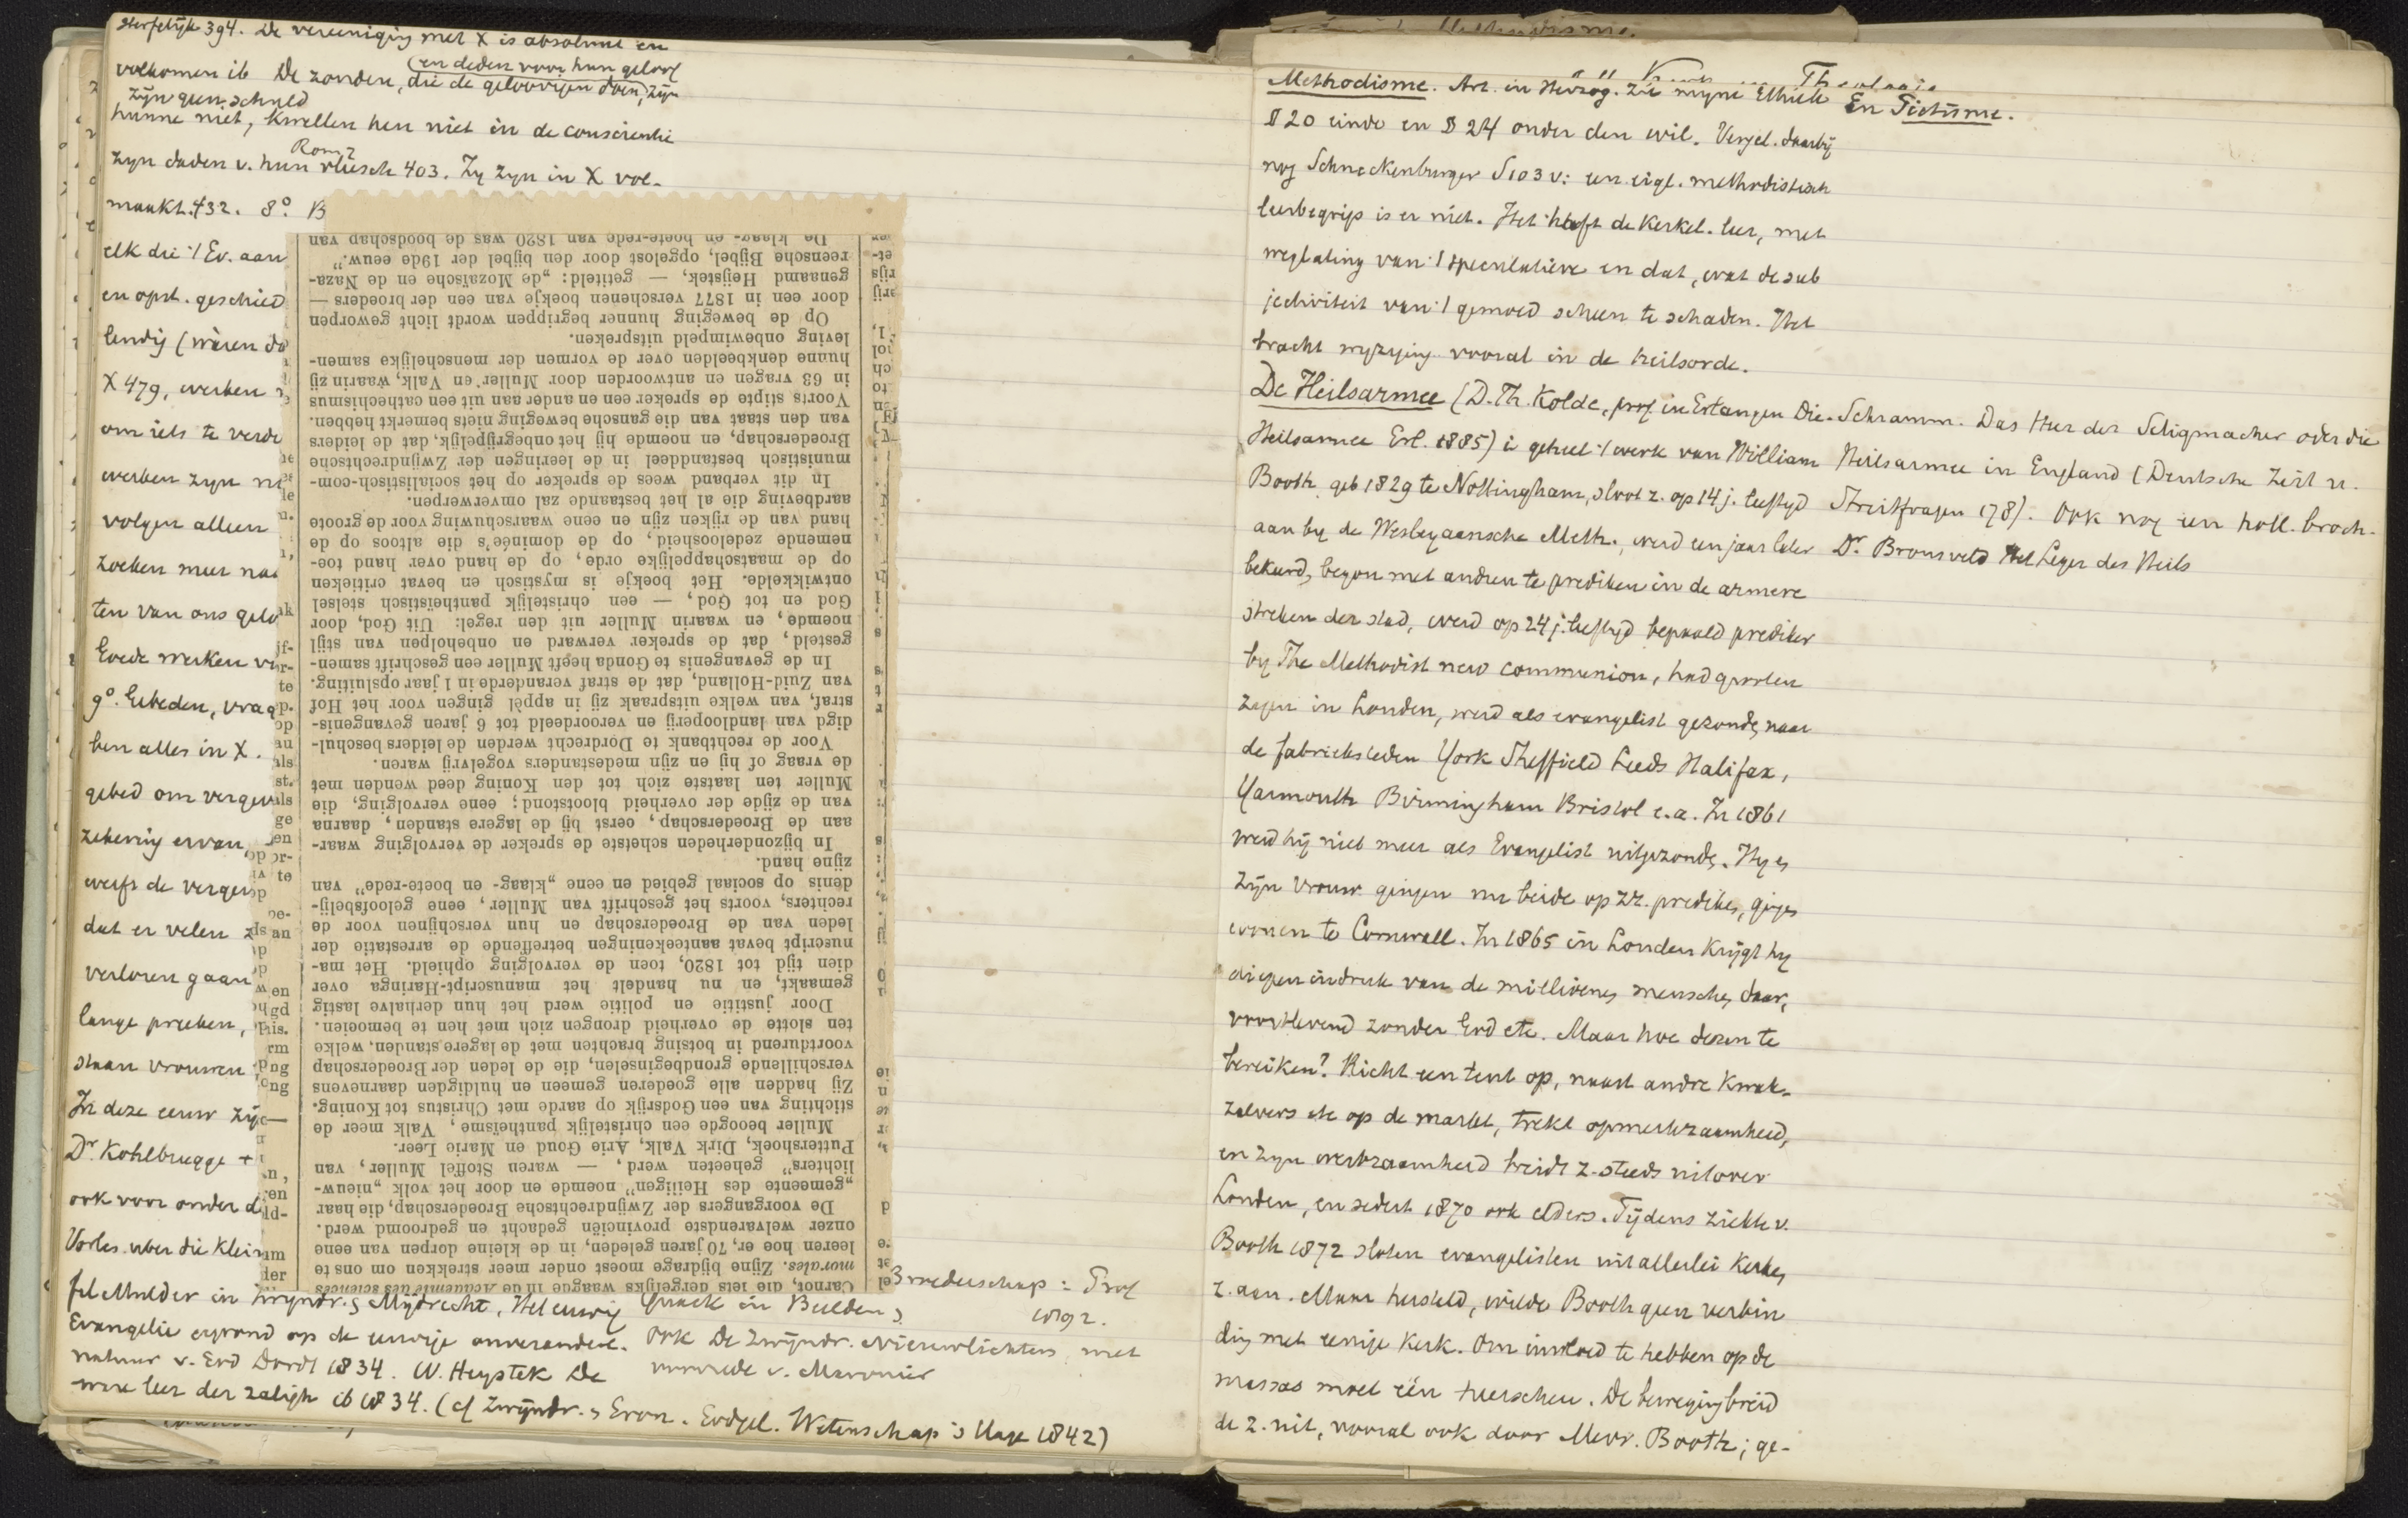 sterfelijk 394. De vereeniging met X is absoluut en
(en deden voor hun geloof
volkomen ib De zonden, die de geloovigen doen, zijn
zijn geen schuld
hunne niet, kwellen hen niet in de conscientie
Rom 7
zijn daden v. hun vleesch 403. Zij zijn in X vol-
maakt. 432. 8°. B
elk die 't Ev. aan
en opst. geschied
lendig (waren do
X 479, werken
om iets te verde
werken zijn ni
volgen alleen
zoeken meer na
ten van ons gelo
Goede werken ver
9°. Gebeden, vraag
ben alles in X.
gebed om verge
zekering ervan,
werpt de verge
dat er velen z
verloren gaan
lange preeken,
staan vrouwen
In deze eeuw zij
Dr Kohlbrugge +
ook voor onder d
Vorles. uber die Klei
fel Mulder in Zwyndr. & Mijdrecht, Het eeuwig
Evangelie gegrond op de eeuwige onverander.
natuur v. God Dordt 1834. W. Heystek De
ware leer der zaligh ib 1834. (cf Zwijndr. & Gron. Godgel. Wetenschap 's Hage 1842)
Broederschap: Prof
Quack in Beelden &
1892.
Ook De Zwijndr. Nieuwlichters, met
voorrede v. Maronier
Carnot, die iets dergelijks waagde in de Academie des sciences
morales. Zijne bijdrage moest onder meer strekken om ons te
leeren hoe er, 70 jaren geleden, in de kleine dorpen van eene
onzer welvarendste provinciën gedacht en gedroomd werd.
De voorgangers der Zwijndrechtsche Broederschap, die haar
„gemeente des Heiligen” noemde en door het volk „nieuw-
lichters” geheeten werd, — waren Stoffel Muller, van
Puttershoek, Dirk Valk, Arie Goud en Marie Leer.
Muller beoogde een christelijk pantheïsme, Valk meer de
stichting van een Godsrijk op aarde met Christus tot Koning.
Zij hadden alle goederen gemeen en huldigden daarnevens
verschillende grondbeginselen, die de leden der Broederschap
voortdurend in botsing brachten met de lagere standen, welke
ten slotte de overheid drongen zich met hen te bemoeien.
Door justitie en politie werd het hun derhalve lastig
gemaakt, en nu handelt het manuscript-Haringa over
dien tijd tot 1820, toen de vervolging ophield. Het ma-
nuscript bevat aanteekeningen betreffende de arrestatie der
leden van de Broederschap en hun verschijnen voor de
rechters, voorts het geschrift van Muller, eene geloofsbelij-
denis op sociaal gebied en eene „klaag- en boete-rede” van
zijne hand.
In bijzonderheden schetste de spreker de vervolging waar-
aan de Broederschap, eerst bij de lagere standen, daarna
van de zijde der overheid blootstond; eene vervolging, die
Muller ten laatste zich tot den Koning deed wenden met
de vraag of hij en zijn medestanders vogelvrij waren.
Voor de rechtbank te Dordrecht werden de leiders beschul-
digd van landlooperij en veroordeeld tot 6 jaren gevangenis-
straf, van welke uitspraak zij in appèl gingen voor het Hof
van Zuid-Holland, dat de straf veranderde in 1 jaar opsluiting.
In de gevangenis te Gouda heeft Muller een geschrift samen-
gesteld, dat de spreker verward en onbeholpen van stijl
noemde, en waarin Muller uit den regel: Uit God, door
God en tot God, — een christelijk pantheistisch stelsel
ontwikkelde. Het boekje is mystisch en bevat critieken
op de maatschappelijke orde, op de hand over hand toe-
nemende zedeloosheid, op de dominée's die altoos op de
hand van de rijken zijn en eene waarschuwing voor de groote
aardbeving die al het bestaande zal omverwerpen.
In dit verband wees de spreker op het socialistisch-com-
munistisch bestanddeel in de leeringen der Zwijndrechtsche
Broederschap, en noemde hij het onbegrijpelijk, dat de leiders
van den staat van die gansche beweging niets bemerkt hebben.
Voorts stipte de spreker een en ander aan uit een cathechismus
in 63 vragen en antwoorden door Muller en Valk, waarin zij
hunne denkbeelden over de vormen der menschelijke samen-
leving onbewimpeld uitspreken.
Op de beweging hunner begrippen wordt licht geworpen
door een in 1877 verschenen boekje van een der broeders —
genaamd Heijstek, — getiteld: „de Mozaïsche en de Naza-
reensche Bijbel, opgelost door den bijbel der 19de eeuw.”
De klaag- en boete-rede van 1820 was de boodschap van
Methodisme. Art. in Herzog. Zie mijne Ethiek En Piëtisme.
§ 20 einde en § 24 onder den wil. Vergel. daarbij
nog Schneckenburger S 103 v: een eigl. methodistisch
leerbegrip is er niet. Het heeft de Kerkel. leer, met
weglating van 't speculatieve en dat, wat de sub
jectiviteit van 't gemoed scheen te schaden. Het
bracht wijziging vooral in de heilsorde.
De Heilsarmee (D. Th. Kolde, prof in Erlangen Die. Schramm. Das Heer der Seligmacher oder die
Heilsarmee Erl. 1885) is geheel 't werk van William Heilsarmee in England (Deutsche Zeit u.
Booth, geb 1829 te Nottingham, sloot z. op 14 j. leeftijd Streitfragen 178). Ook nog een holl. broch.
aan by de Wesleyaansche Meth., werd een jaar later Dr. Bronsveld Het Leger des Heils
bekeerd, begon met andren te prediken in de armere
streken der stad, werd op 24 j. leeftijd bepaald prediker
by The Methodist new communion, had grooten
zegen in Londen, werd als evangelist gezonden naar
de fabriekssteden York Sheffield Leeds Halifax,
Yarmouth Birmingham Bristol e.a. In 1861
werd hij niet meer als Evangelist uitgezonden. Hij en
zijn vrouw gingen nu beide op zz. prediken, gingen
wonen te Cornwall. In 1865 in Londen krijgt hij
diepen indruk van de millioenen menschen daar,
voortlevend zonder God etc. Maar hoe dezen te
bereiken? Richt een tent op, naast andre kwak-
zalvers etc op de markt, trekt opmerkzaamheid,
en zijn werkzaamheid breidt z. steeds uit over
Londen, en sedert 1870 ook elders. Tijdens ziekte v.
Booth 1872 sloten evangelisten uit allerlei Kerken
z. aan. Maar hersteld, wilde Booth geen verbin
ding met eenige Kerk. Om invloed te hebben op de
massas moet één heerschen. De beweging breid
de z. uit, vooral ook door Mevr. Booth; ge-